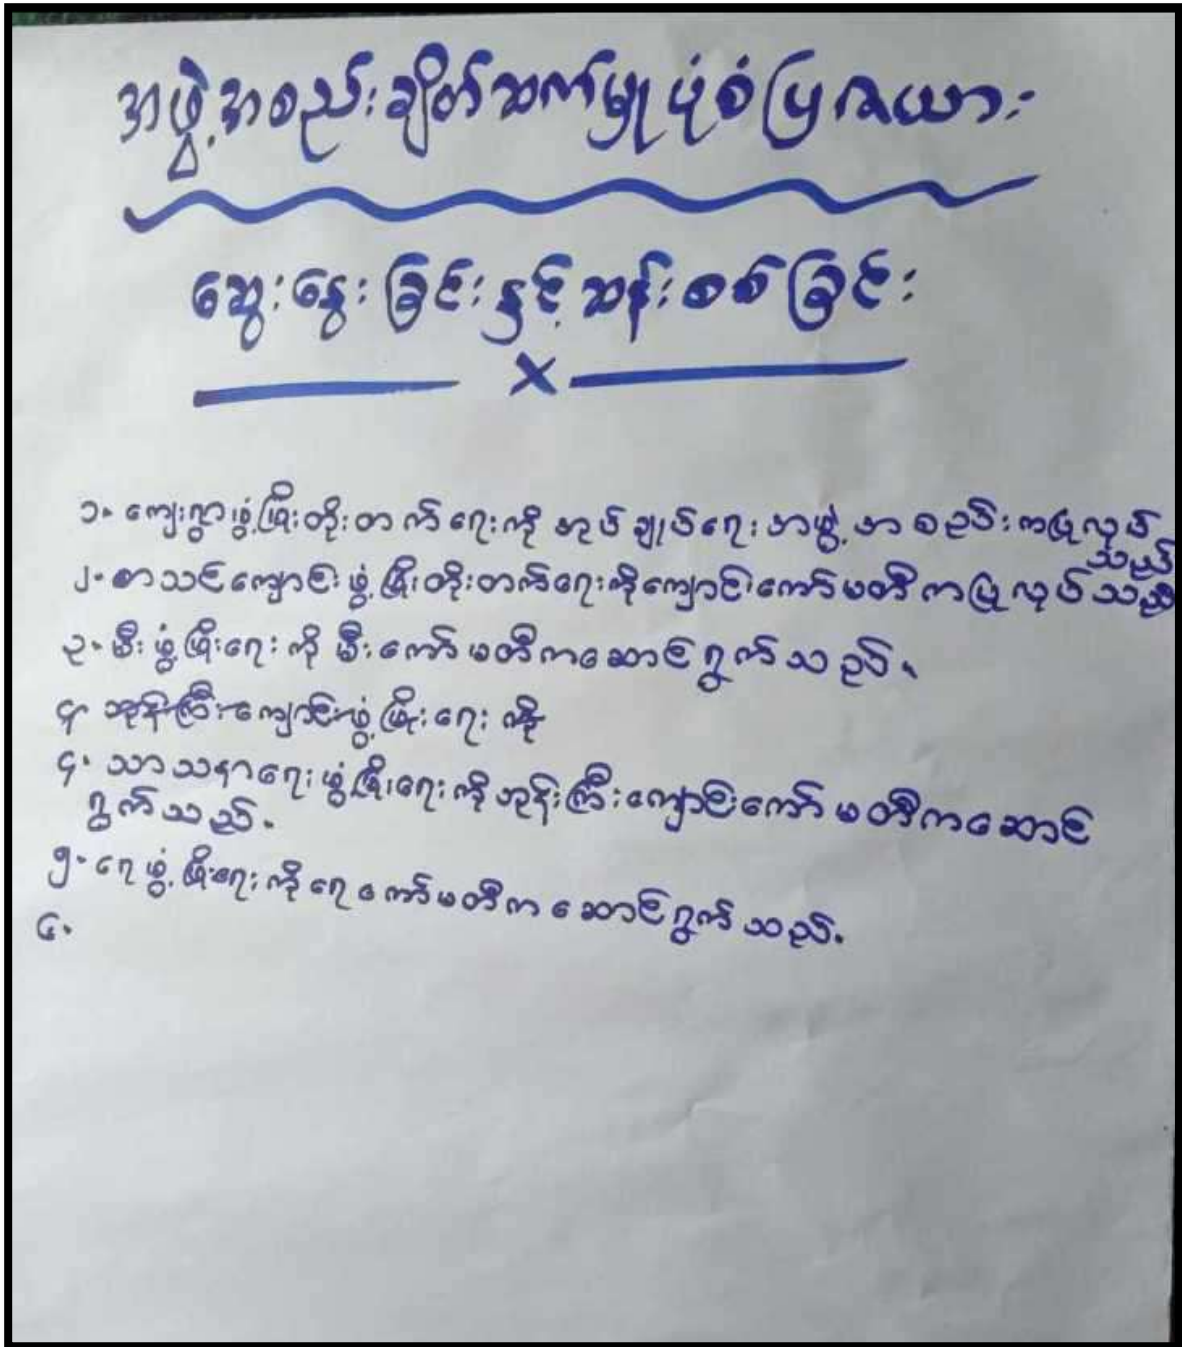 အဖွဲ့အစည်းချိတ်ဆက်မှုပုံစံပြဇယား
ဆွေးနွေးခြင်းနှင့်ဆန်းစစ်ခြင်း
၁။ ကျေးရွာဖွံ့ဖြိုးတိုးတက်ရေးကို အုပ်ချုပ်ရေးအဖွဲ့အစည်းကပြုလုပ်
သည်
၂။ စာသင်ကျောင်းဖွံ့ဖြိုးတိုးတက်ရေးကိုကျောင်းကော်မတီကပြုလုပ်သည်
၃။ မီးဖွံ့ဖြိုးရေးကို မီးကော်မတီကဆောင်ရွက်သည်။
၄။ ဘုန်းကြီးကျောင်းဖွံ့ဖြိုးရေးကို
၄။ သာသနာရေးဖွံ့ဖြိုးရေးကိုဘုန်းကြီးကျောင်းကော်မတီကဆောင်
ရွက်သည်။
၅။ ရေဖွံ့ဖြိုးရေးကိုရေကော်မတီကဆောင်ရွက်သည်။
၆။